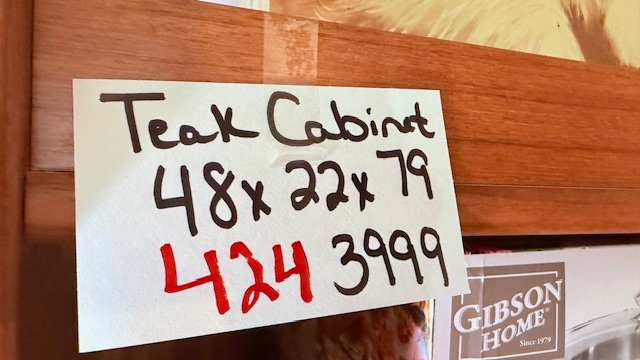 Teak Cabinet
48 x 22 x 79
424 3999
GIBSON
HOME®
Since 1979